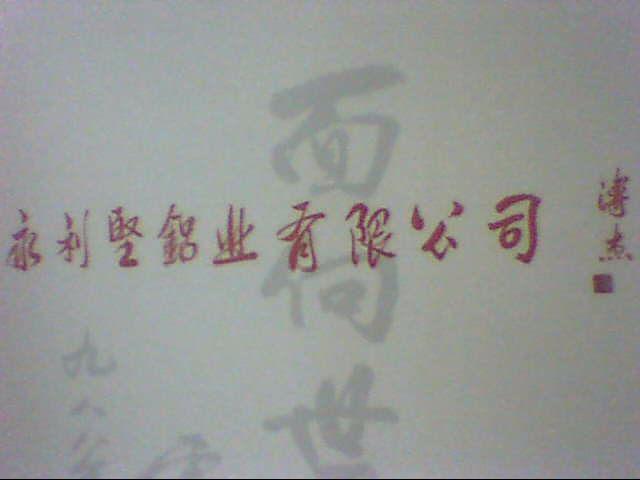 永利坚铝业有限公司
溥杰
面向世
九八